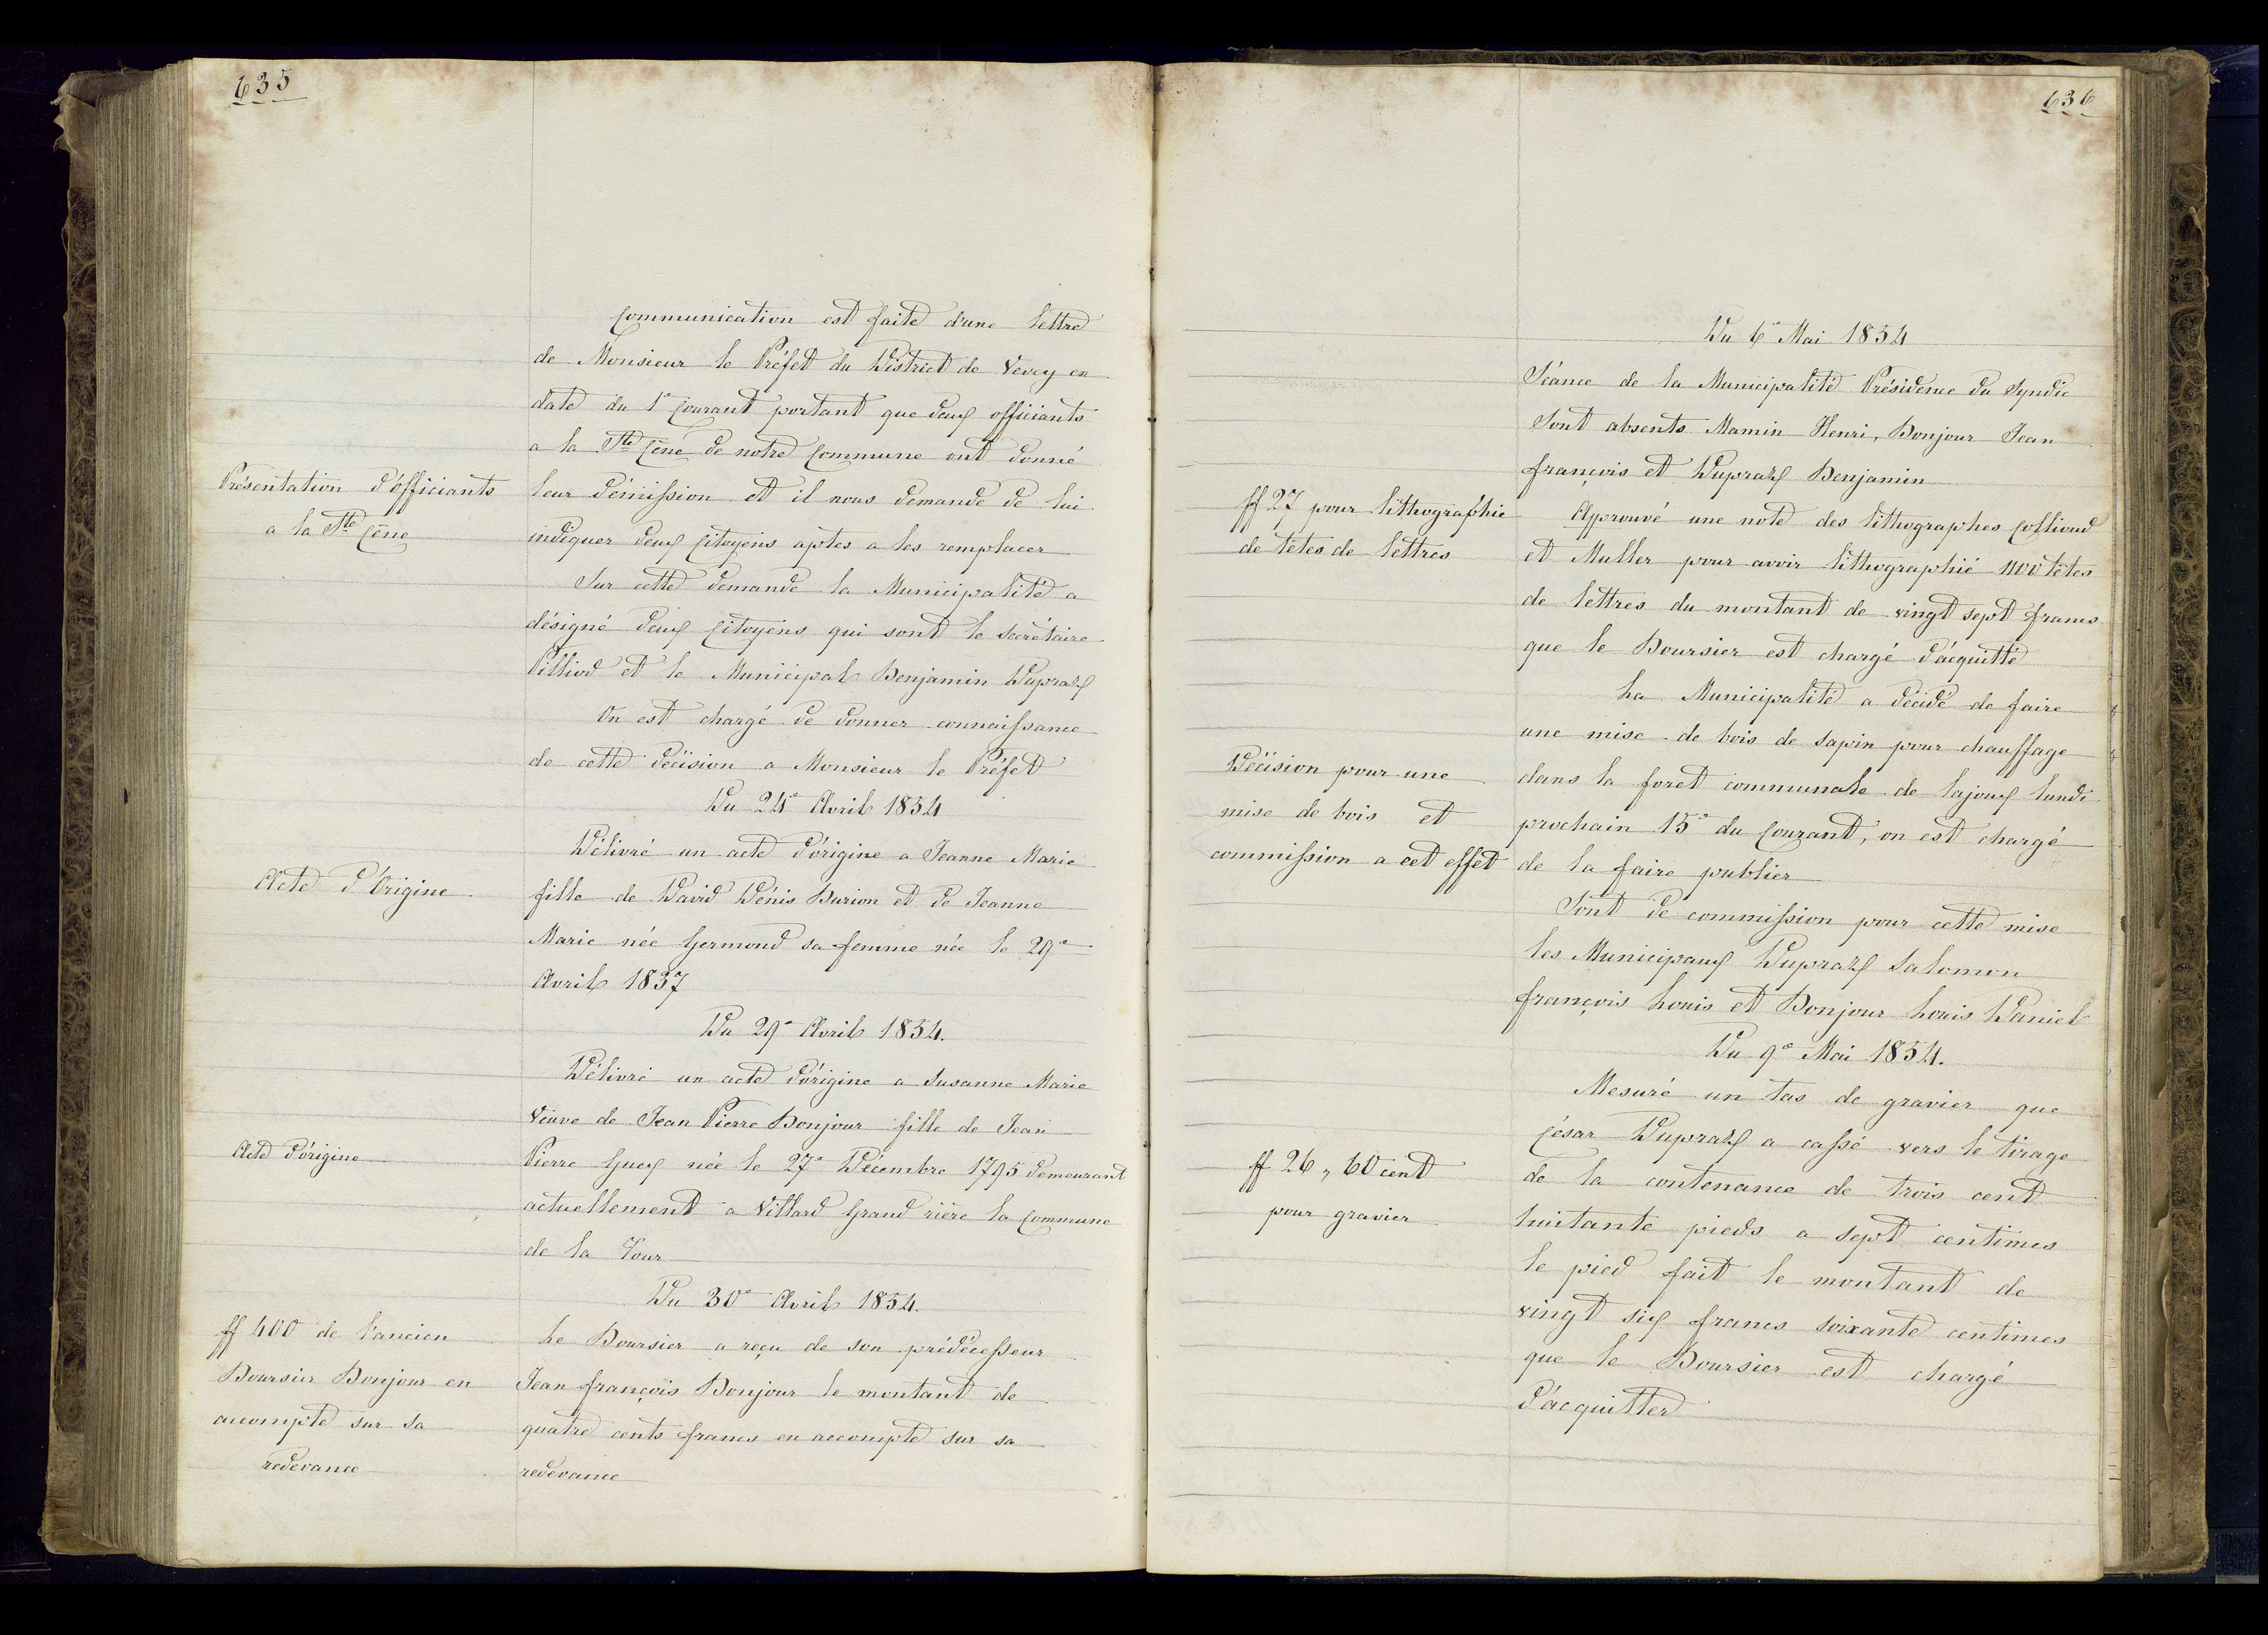 635
Communication est faite d'une lettre
de Monsieur le Préfet du District de Vevey en
date du 1e Courant portant que deux officiants
a la Ste Cène de notre Commune ont donné
Présentation d'officiants
a la Ste Cène
leur démission et il nous demande de lui
indiquer deux Citoyens aptes a les remplacer
Sur cette demande la Municipalité a
désigné deux Citoyens qui sont le Secrétaire
Pilliod et le Municipal Benjamin Dupraz
On est chargé de donner connaissance
de cette décision a Monsieur le Préfet
Du 24e Avril 1854
Acte d'Origine
Délivré un acte d'origine a Jeanne Marie
fille de David Dénis Burion et de Jeanne
Marie née Germond sa femme née le 29e
Avril 1837
Du 29e Avril 1854.
Acte d'origine
Délivré un acte d'origine a Susanne Marie
Veuve de Jean Pierre Bonjour fille de Jean
Pierre Guex née le 27e Décembre 1795 demeurant
actuellement a Villard Grand rière la Commune
de la Tour
Du 30e Avril 1854.
ff 400 de l'ancien
Boursier Bonjour en
accompte sur sa
redevance
Le Boursier a reçu de son prédécesseur
Jean françois Bonjour le montant de
quatre cents francs en accompte sur sa
redevance
636
Du 6e Mai 1854
Séance de la Municipalité Présidence du Syndic
Sont absents Mamin Henri, Bonjour Jean
françois et Dupraz Benjamin
ff 27 pour lithographie
de têtes de lettres
Approuvé une note des lithographes Collioud
et Muller pour avoir lithographié 1100 têtes
de lettres du montant de vingt sept francs
que le Boursier est chargé d'acquitté
La Municipalité a décidé de faire
une mise de bois de sapin pour chauffage
Décision pour une
mise de bois et
commission a cet effet
dans la foret communale de lajoux lundi
prochain 15e du Courant, on est chargé
de la faire publier
Sont de commission pour cette mise
les Municipaux Dupraz Salomon
françois Louis et Bonjour Louis Daniel
Du 9e Mai 1854.
Mesuré un tas de gravier que
César Dupraz a cassé vers le tirage
ff 26 „ 60 cent
pour gravier
de la contenance de trois cent
huitante pieds a sept centimes
le pied fait le montant de
vingt six francs soixante centimes
que le Boursier est chargé
d'acquitter